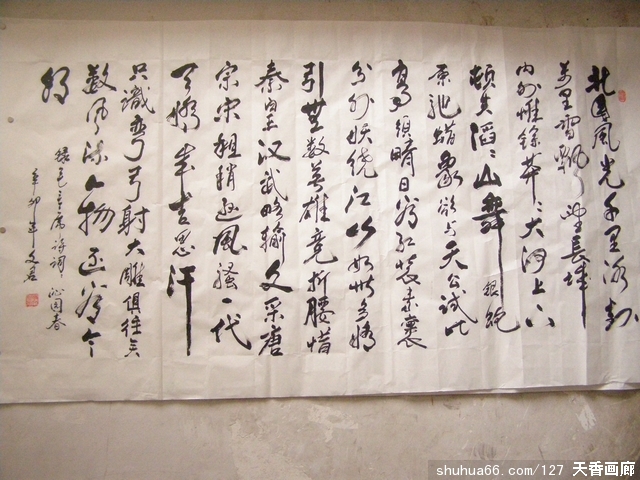 北國風光千里冰封
萬里雪飘望長城
内外惟餘莽々大河上下
顿失滔々山舞銀蛇
原驰蜡象欲与天公试比
高须晴日看红装素裹
分外妖娆江山如此多娇
引無数英雄竞折腰惜
秦皇汉武略输文采唐
宗宋祖稍逊風骚一代
天骄成吉思汗
只識弯弓射大雕俱往矣
数风流人物还看今
朝
録毛主席诗词沁园春
辛卯年文君
shuhua66.com/127 天香画廊